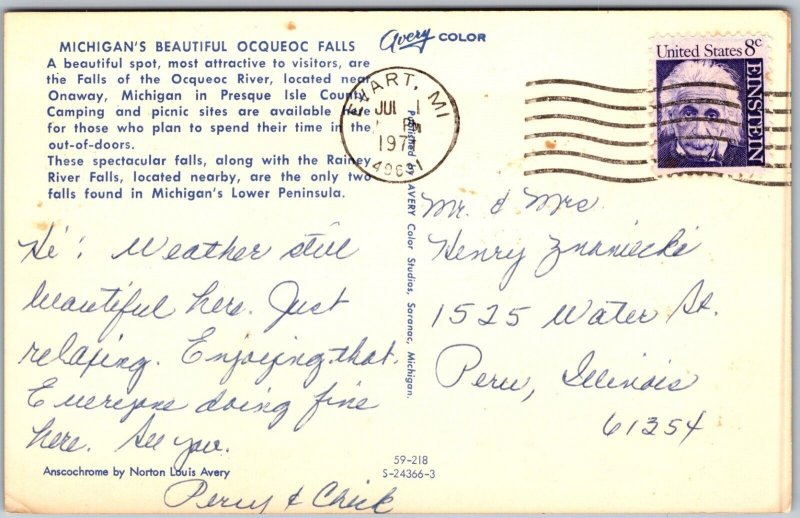 MICHIGAN'S BEAUTIFUL OCQUEOC FALLS
A beautiful spot, most attractive to visitors, are
the Falls of the Ocqueoc River, located near
Onaway, Michigan in Presque Isle County.
Camping and picnic sites are available here
for those who plan to spend their time in the
out-of-doors.
These spectacular falls, along with the Rainey
River Falls, located nearby, are the only two
falls found in Michigan's Lower Peninsula.
Avery COLOR
EVART, MI
JUL 1
PM
197
49631
United States 8c
EINSTEIN
Published by AVERY Color Studios, Saranac, Michigan.
Hi! Weather still
beautiful here. Just
relaxing. Enjoying that.
Everyone doing fine
here. See you.
Percy & Chick
Mr. & Mrs
Henry Znaniecki
1525 Water St.
Peru, Illinois
61354
Anscochrome by Norton Louis Avery
59-218
S-24366-3